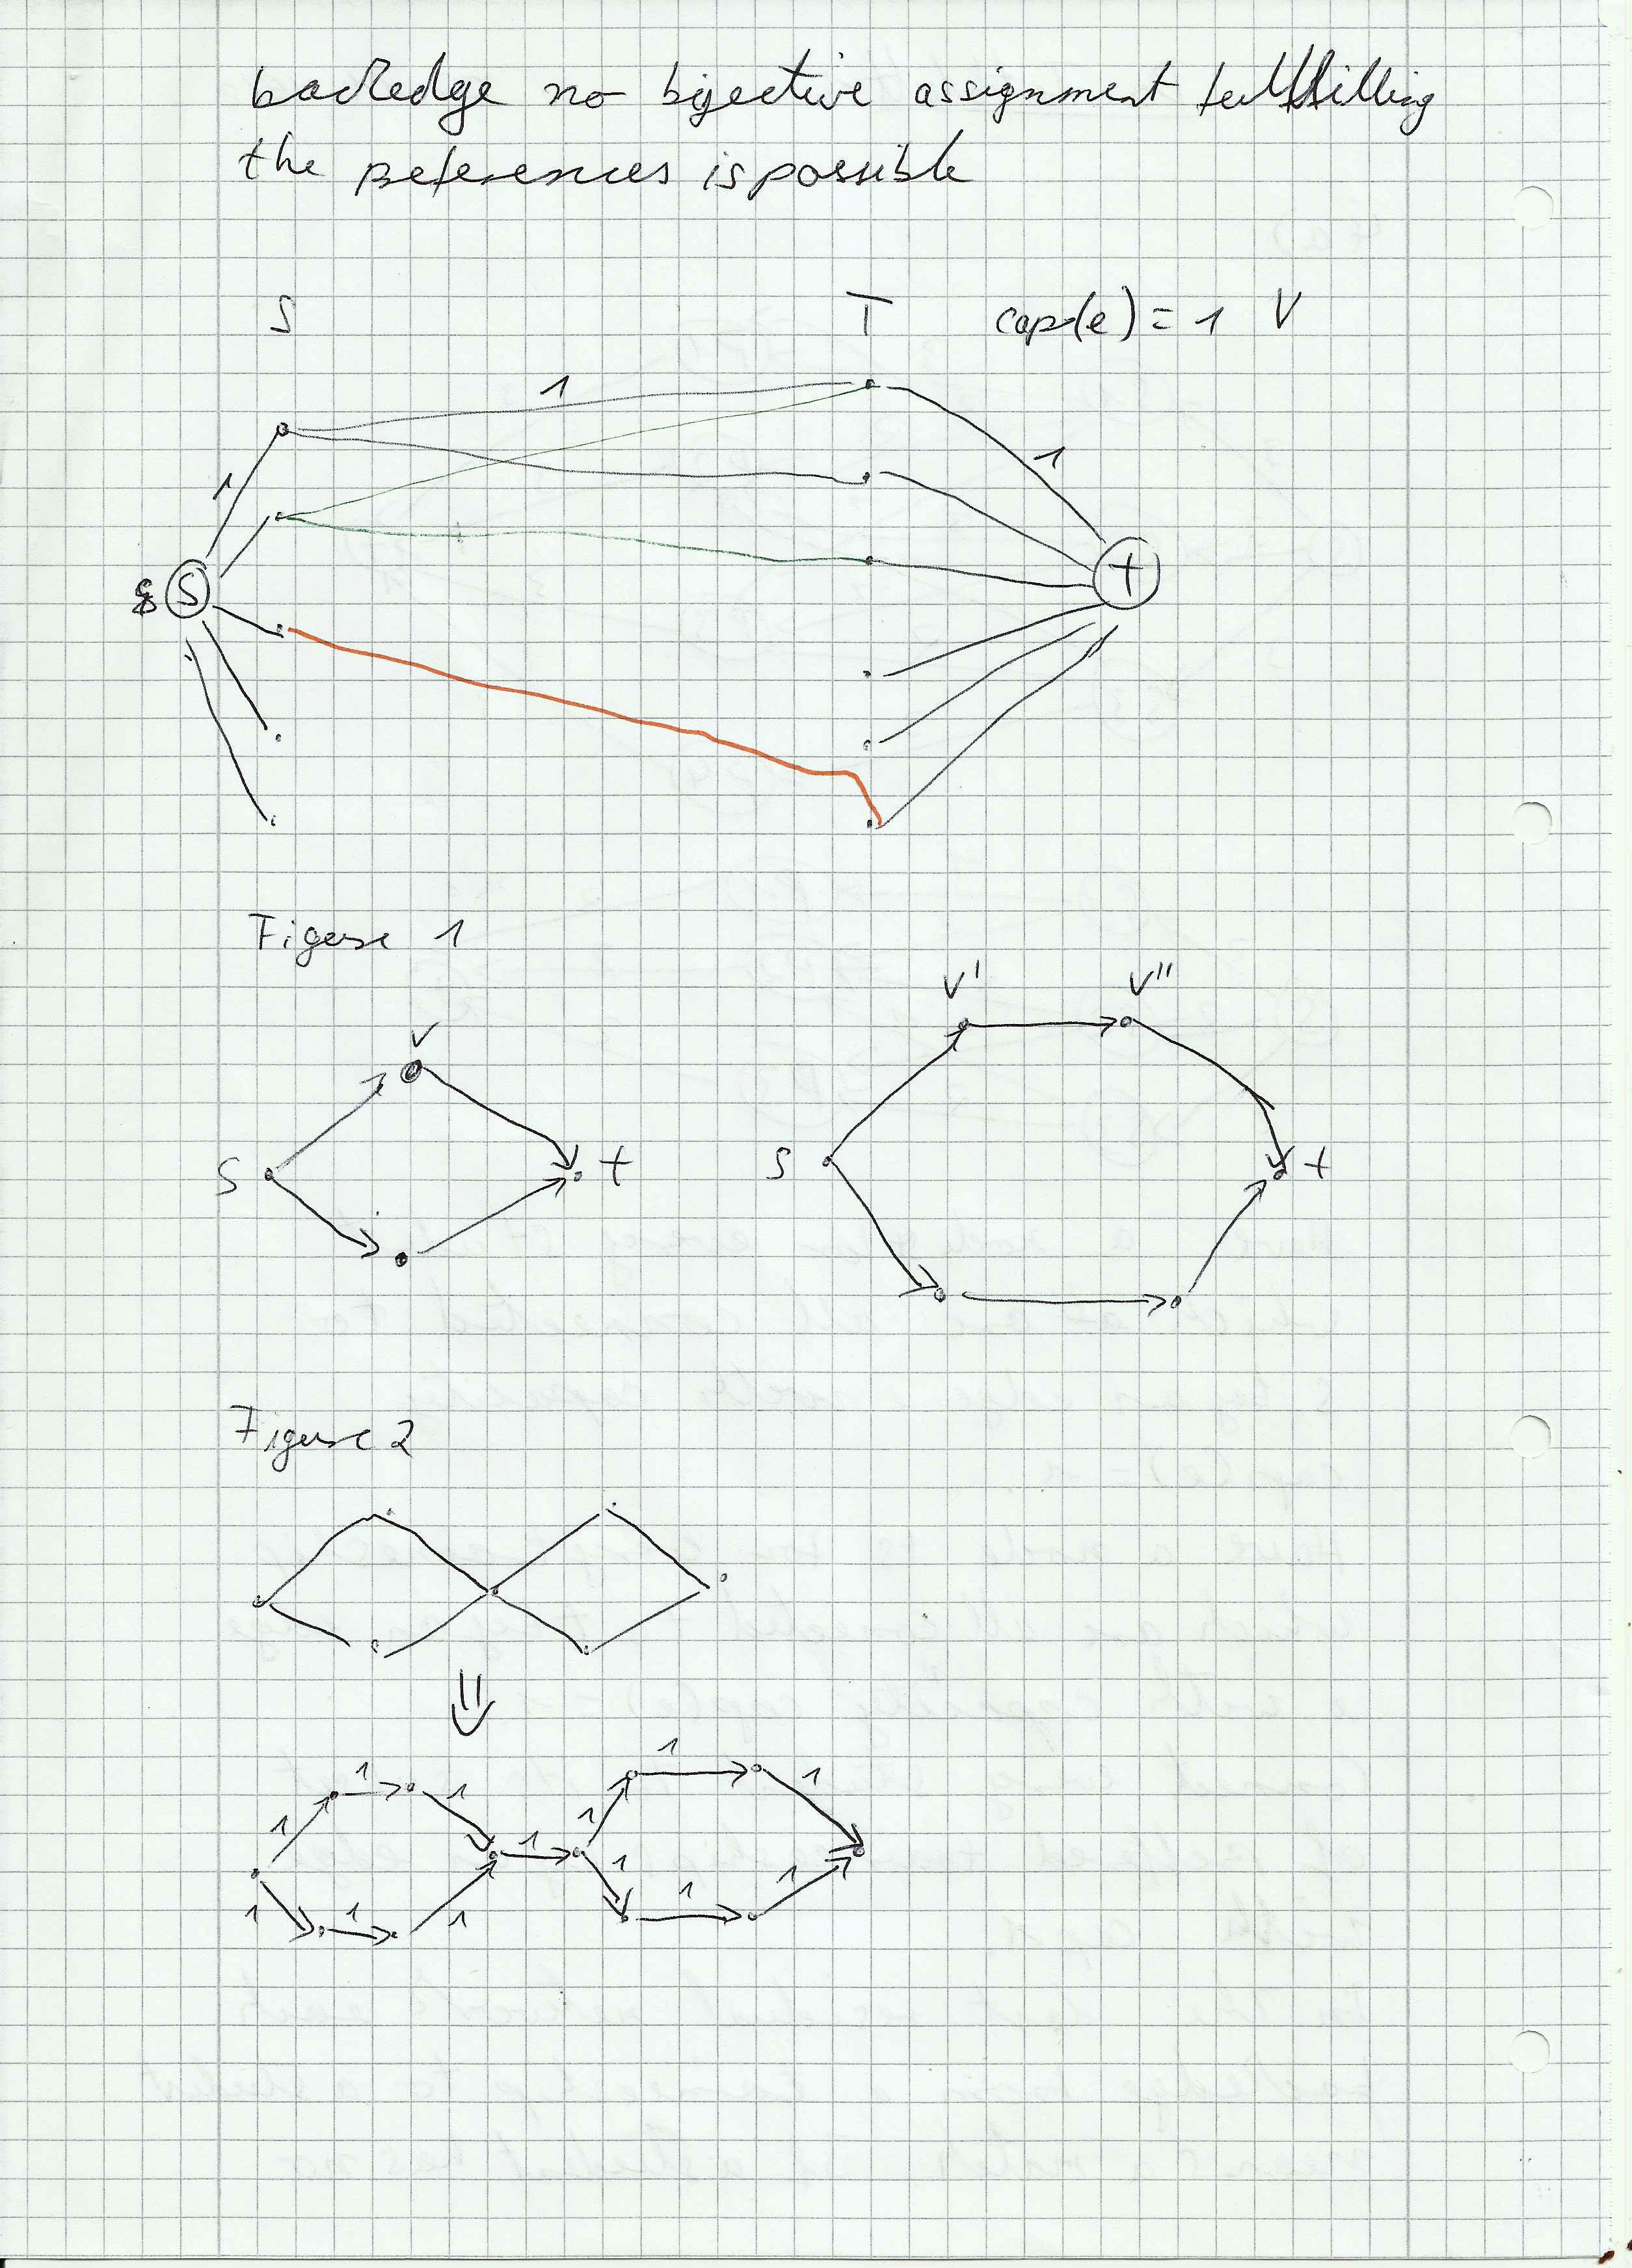 backedge no bijective assignment fullfilling
the preferences is possible
S T cap(e) = 1 V
1
1
1
S
t
Figure 1
V' V''
V
S t S t
Figure 2
1 1 1 1 1
1 1 1 1
1 1 1 1 1